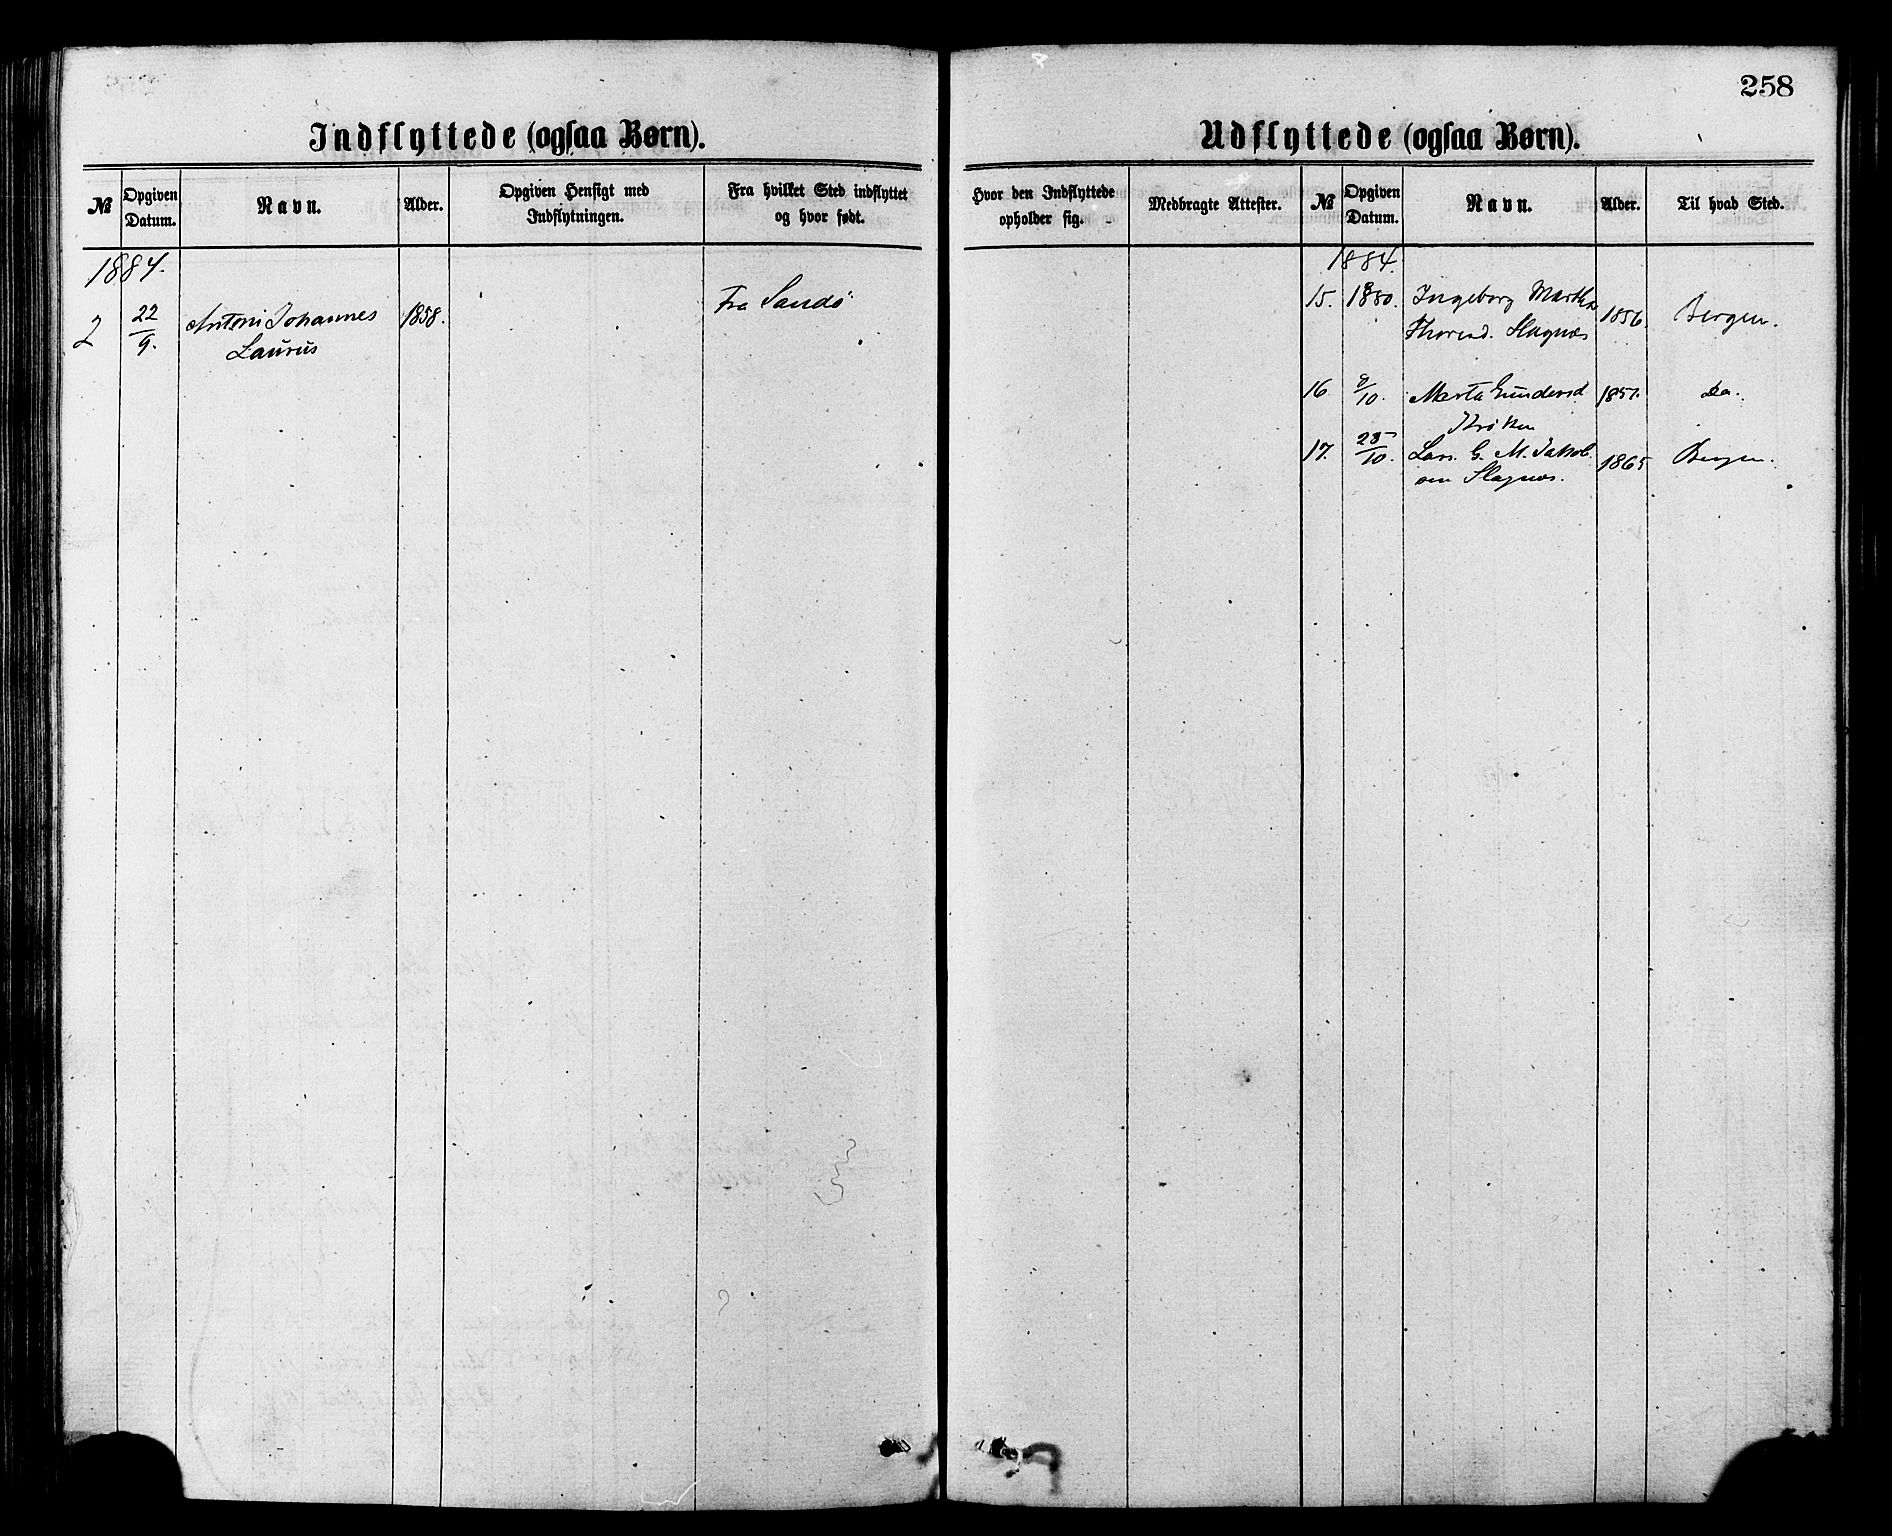 258
Indflyttede (ogsaa Børn).
№ Opgiven Datum. Navn. Alder. Opgiven Hensigt med Indflytningen. Fra hvilket Sted indflyttet og hvor født.
1884.
2 22/9. Antoni Johannes 1858. Fra Sandø
Laurus
Udflyttede (ogsaa Børn).
Hvor den Indflyttede opholder sig. Medbragte Attester. № Opgiven Datum. Navn. Alder. Til hvad Sted.
1884.
15. 1880. Ingeborg Martha 1856. Bergen.
Thoresd. Slagnæs
16. 9/10. Marta Gundersd. 1857. Do.
Krøken
17. 25/10. Lars G. M. Jakob 1865 Bergen.
sen Slagnæs.